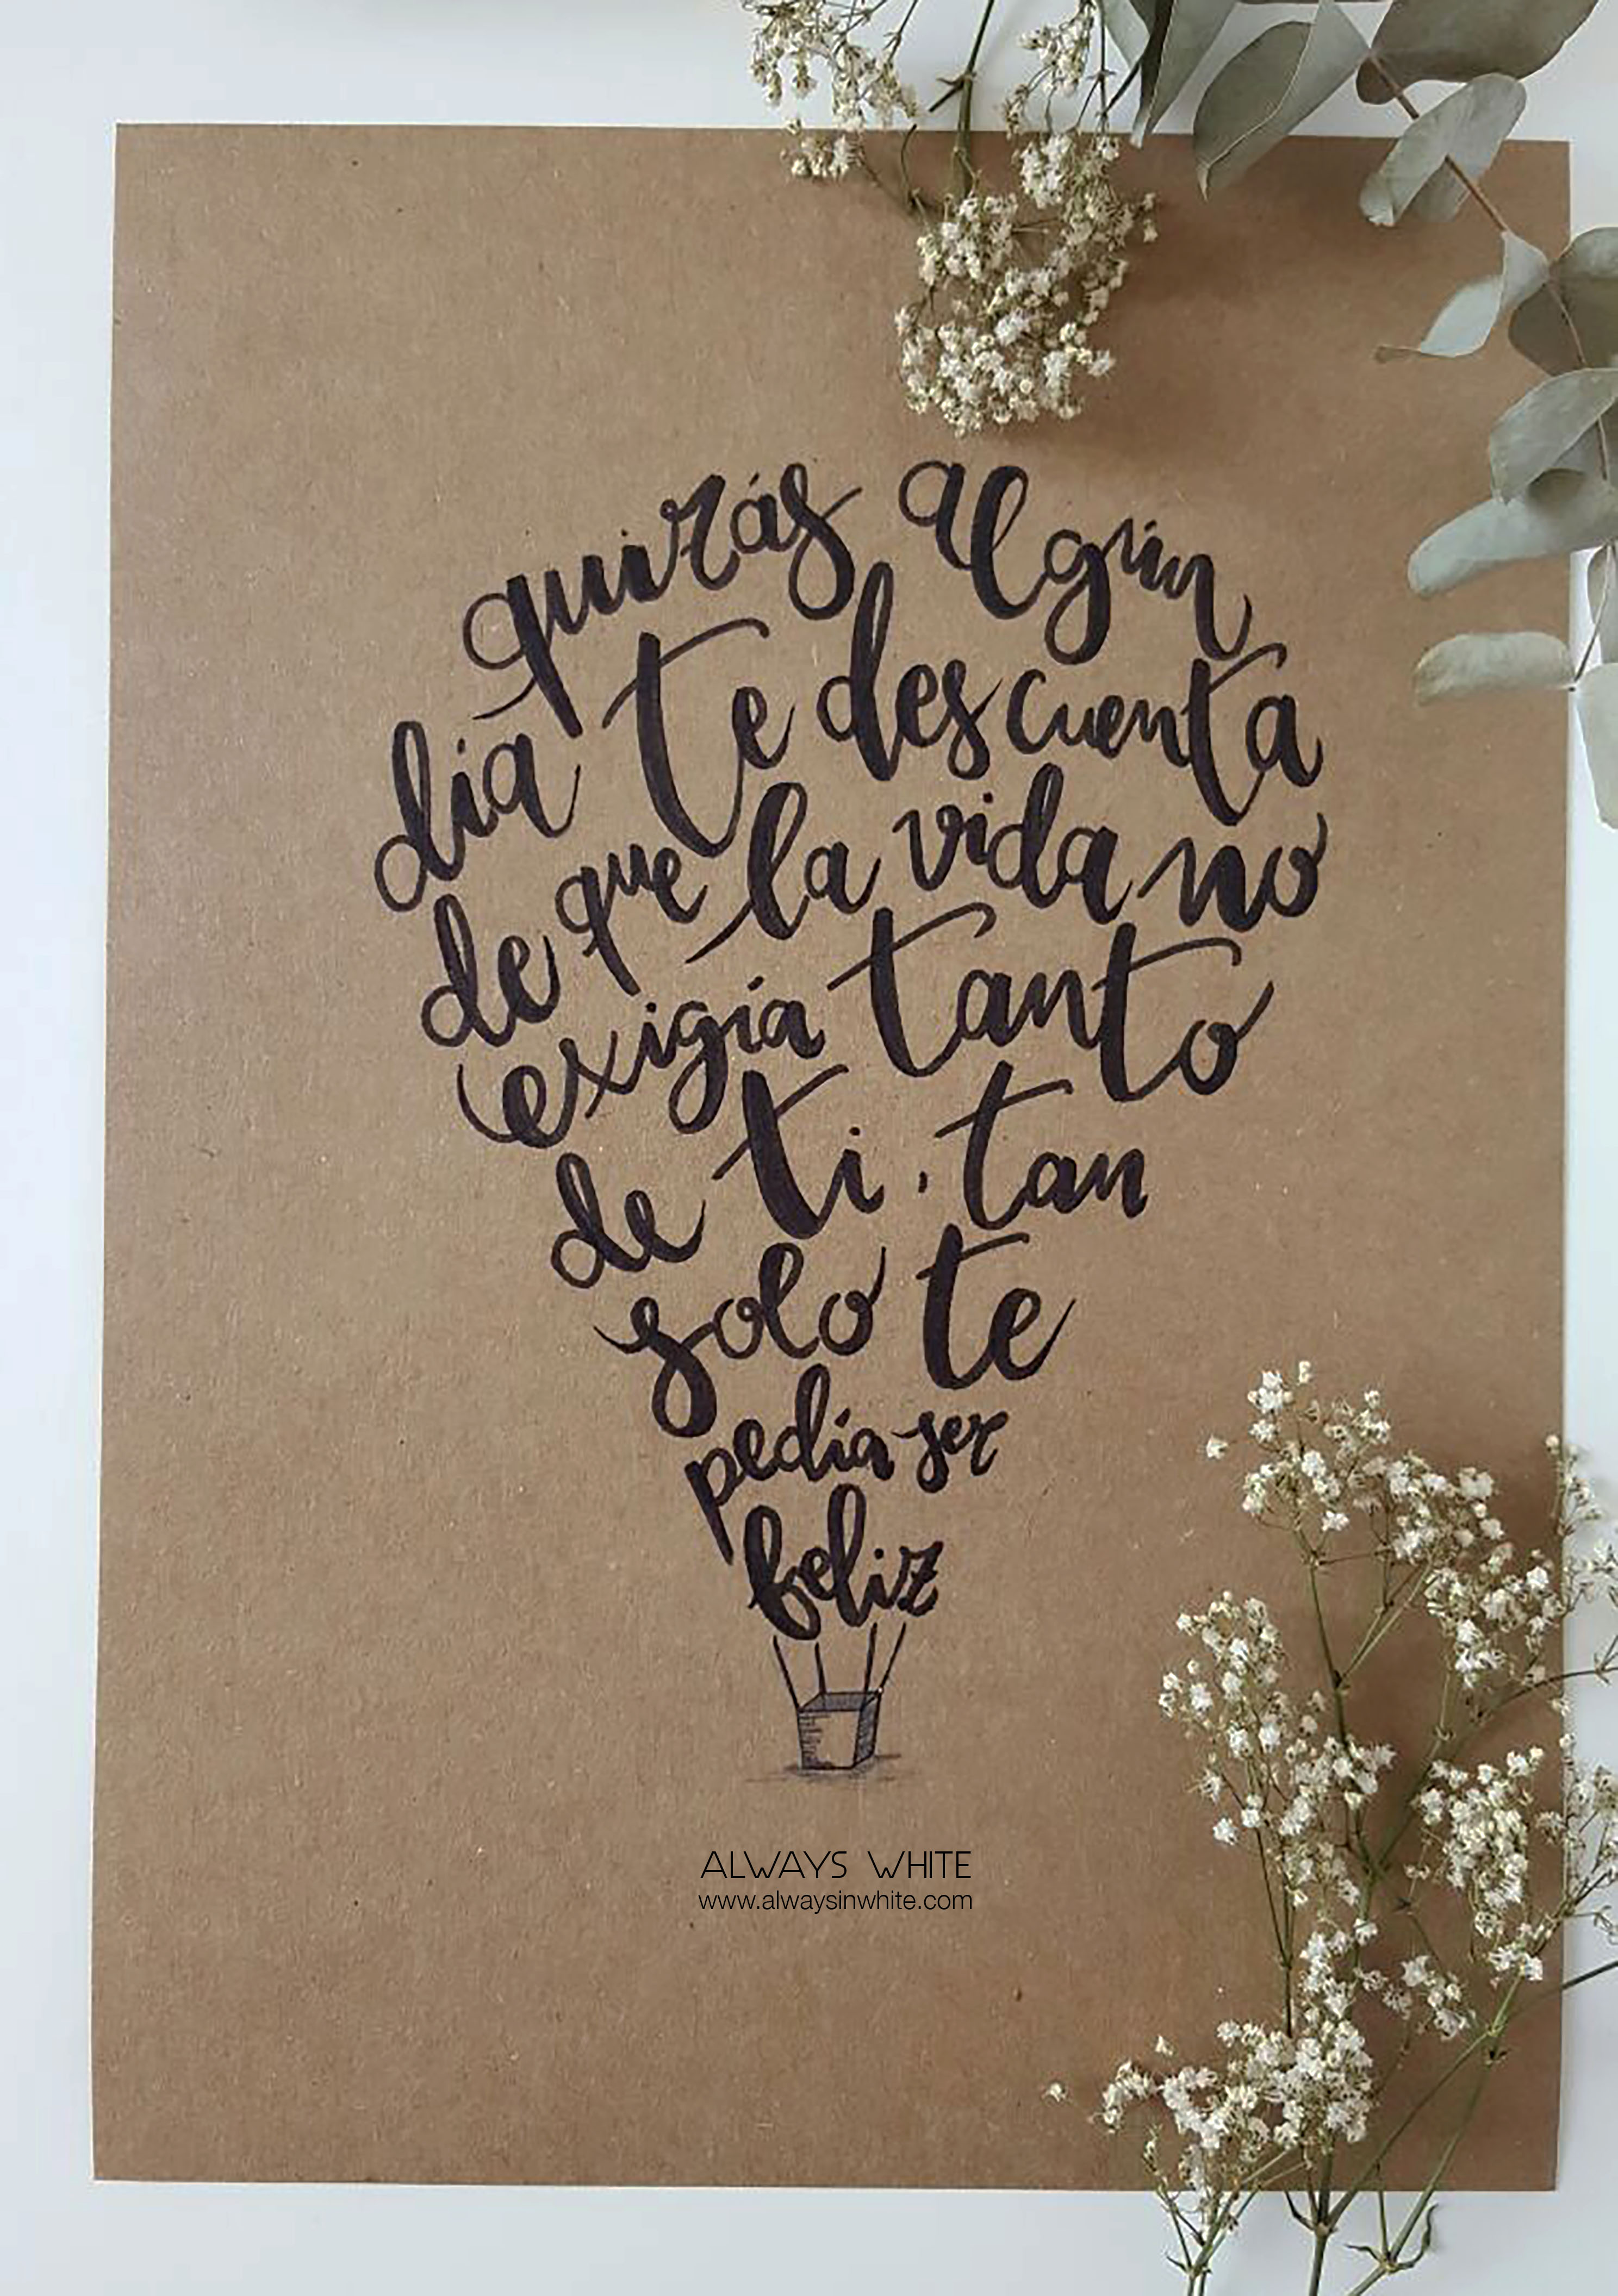 quizás algún
dia te descuenta
de que la vida no
exigía tanto
de ti, tan
solo te
pedía ser
feliz
ALWAYS WHITE
www.alwaysinwhite.com